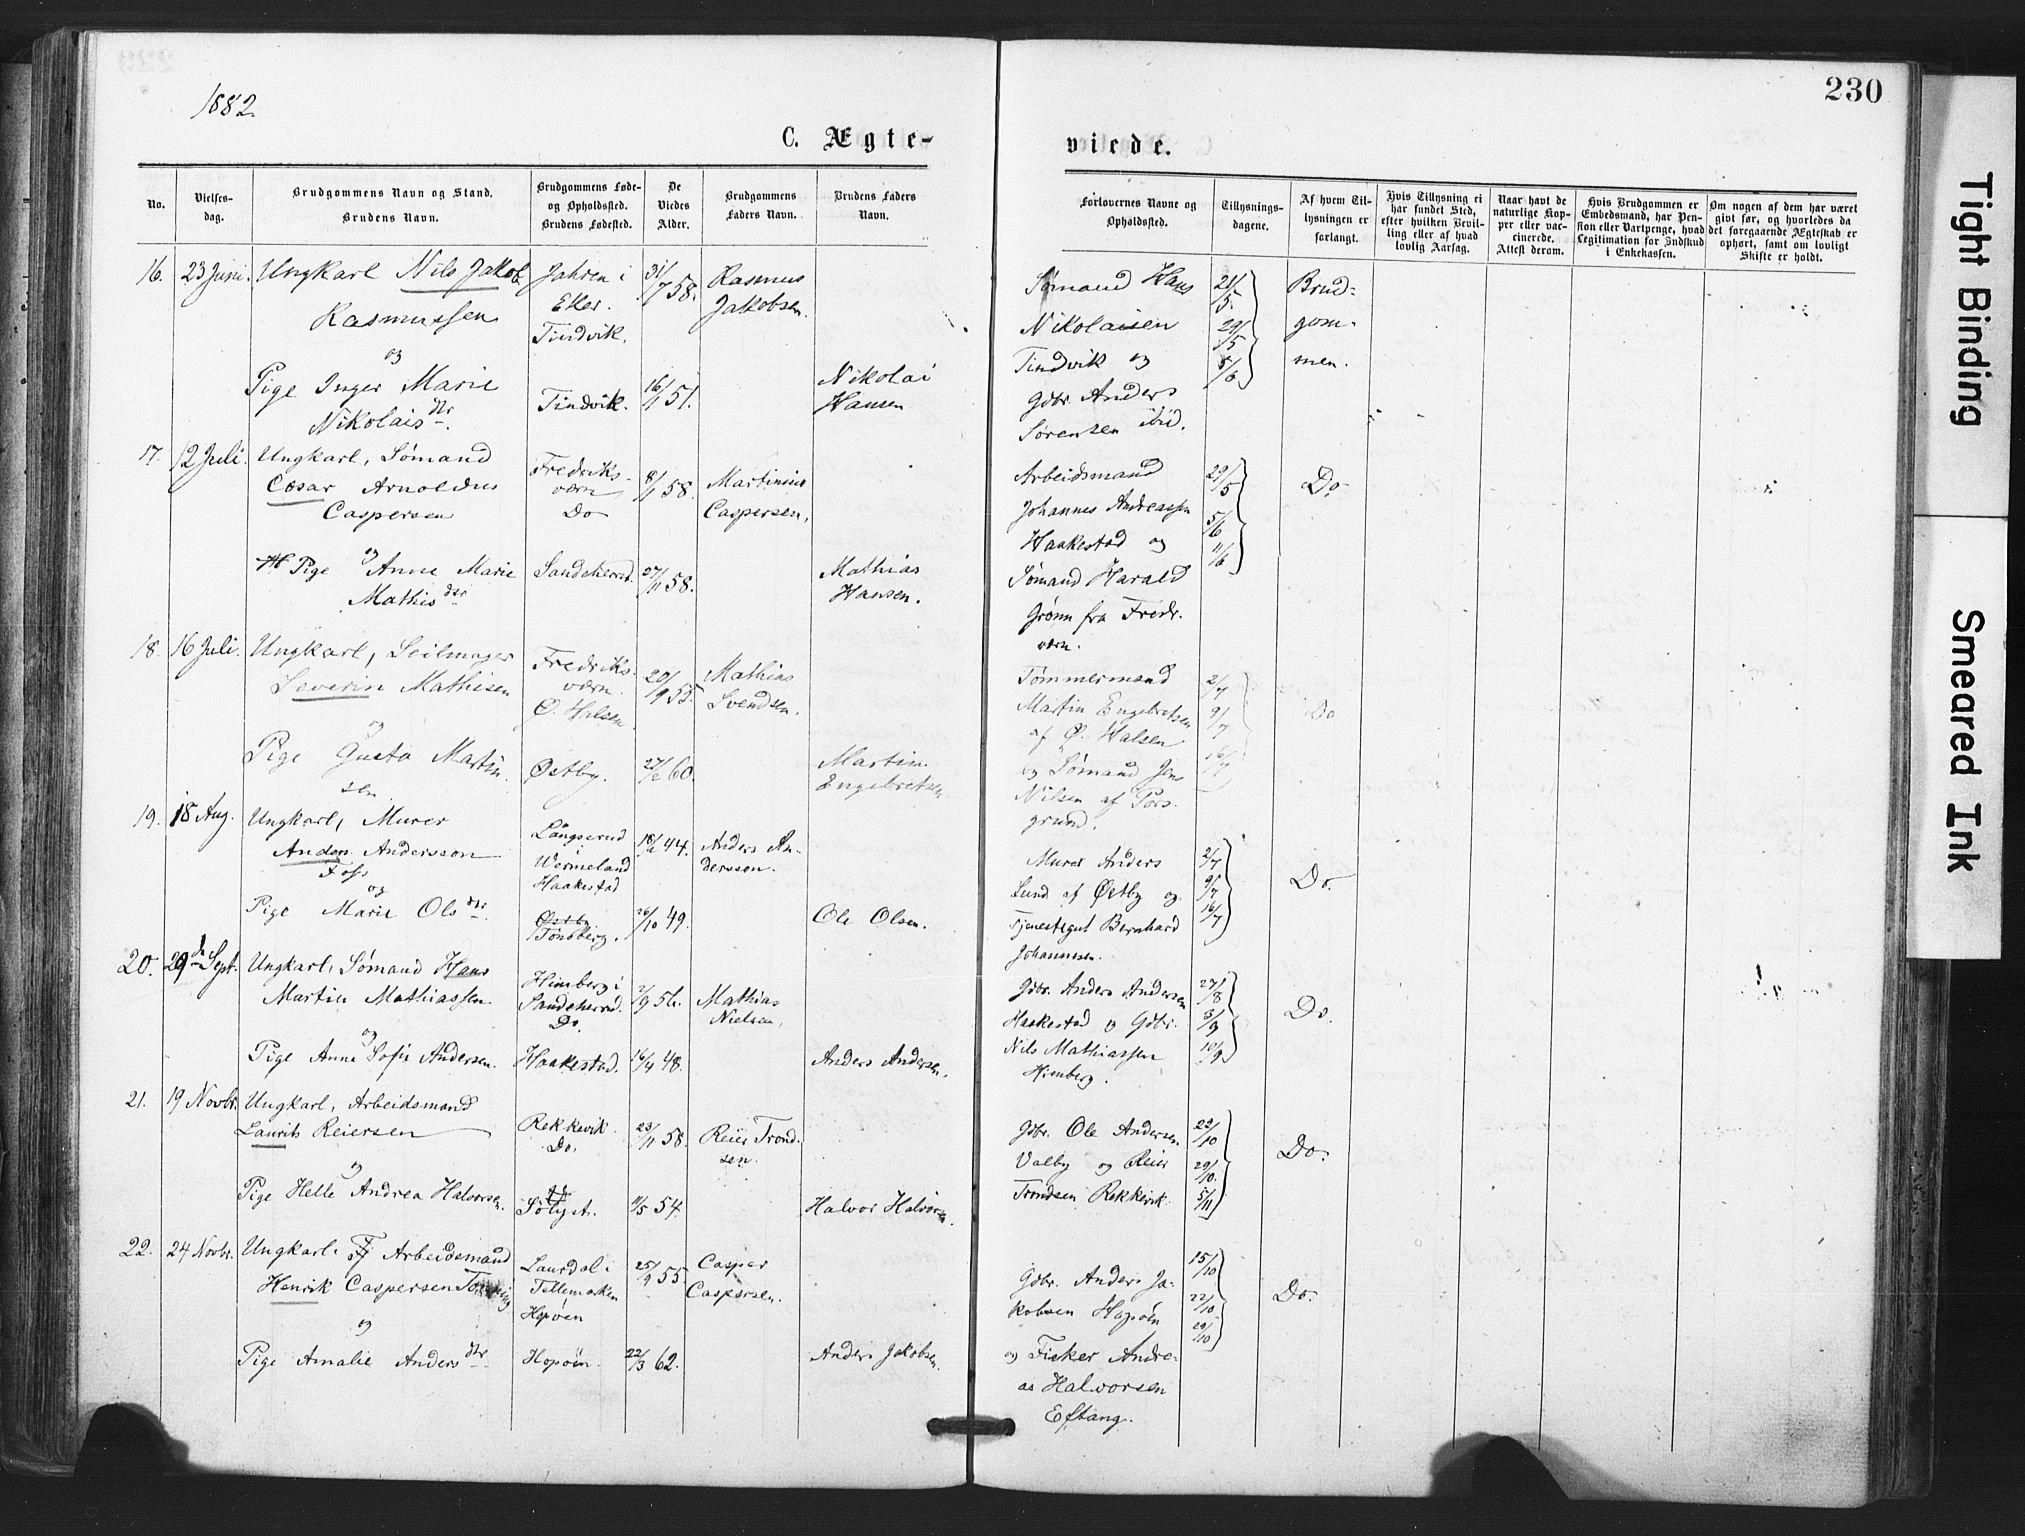 230
1882.
C. Ægte-
viede.
No.
Vielses-
dag.
Brudgommens Navn og Stand.
Brudens Navn.
Brudgommens Føde-
og Opholdssted.
Brudens Fødested.
De
Viedes
Alder.
Brudgommens
Faders Navn.
Brudens Faders
Navn.
Forlovernes Navne og
Opholdssted.
Tillysnings-
dagene.
Af hvem Til-
lysningen er
forlangt.
Hvis Tillysning ei
har fundet Sted,
efter hvilken Bevil-
ling eller af hvad
lovlig Aarsag.
Naar havt de
naturlige Kop-
per eller vac-
cinerede.
Attest derom.
Hvis Brudgommen er
Embedsmand, har Pen-
sion eller Vartpenge, hvad
Legitimation for Indskud
i Enkekassen.
Om nogen af dem har været
givt før, og hvorledes da
det foregaaende Ægteskab er
ophørt, samt om lovligt
Skifte er holdt.
16. 23 Juni. Ungkarl Nils Jakob
Rasmussen
og
Pige Inger Marie
Nikolaisdtr.
Jahren i
Eker.
Tindvik.
Tindvik.
31/7 58.
16/1 51.
Rasmus
Jakobsen.
Nikolai
Hansen
Sømand Hans
Nikolaisen
Tindvik og
Gdbr. Anders
Sørensen ibid.
21/5.
29/5
5/6
Brud-
gom-
men.
17. 12 Juli. Ungkarl, Sømand
Cæsar Arnoldus
Caspersen
og
Pige Anne Marie
Mathisdtr.
Fredriks-
værn
Do
Sandeherred.
8/1 58.
27/11 58.
Martinius
Caspersen.
Mathias
Hansen.
Arbeidsmand
Johannes Andreassen
Haakestad og
Sømand Harald
Grønn fra Fredr.
værn.
29/5
5/6
11/6
Do.
18. 16 Juli. Ungkarl, Seilmager
Severin Mathisen
og
Pige Gusta Martin
sen
Fredriks-
værn.
Ø. Halsen.
Østby.
20/9 55.
27/2 60.
Mathias
Svendsen.
Martin
Engebretsen
Tømmermand
Martin Engebretsen
af Ø. Halsen
og Sømand Jens
Nilsen af Pors-
grund.
2/7
9/7
16/7
Do
19. 18 Aug. Ungkarl, Murer
Anders Andersson
Foss
og
Pige Marie Olsdtr.
Långserud
i
Wermeland
Haakestad
Østby
Tønsberg.
18/2 44.
26/10 49.
Anders An-
dersson.
Ole Olsen.
Murer Anders
Lund af Østby og
Tjenestegut Bernhard
Johannesen.
2/7
9/7
16/7
Do.
20. 29de Sept. Ungkarl, Sømand Hans
Martin Mathiassen
og
Pige Anne Sofie Andersen.
Himberg i
Sandeherred.
Do.
Haakestad.
2/9 56.
16/4 48.
Mathias
Nielsen.
Anders Andersen.
Gdbr. Anders Andersen
Haakestad og Gdbr.
Nils Mathiassen
Himberg.
27/8
3/9
10/9
Do.
21. 19 Novbr. Ungkarl, Arbeidsmand
Laurits Reiersen
og
Pige Helle Andrea Halvorsen.
Rekkevik.
Do.
Sølyst.
23/11 58.
11/5 54.
Reier Trond-
sen.
Halvor Halvorsen.
Gdbr. Ole Andersen
Valby og Reier
Trondsen Rekkevik.
22/10
29/10.
5/11
Do.
22. 24 Novbr. Ungkarl. Arbeidsmand
Henrik Caspersen
og
Pige Amalie Andersdtr.
Laurdal i
Tellemarken
Hopøen
Hopøen.
25/9 55.
22/3 62.
Casper
Caspersen.
Anders Jakobsen.
Gdbr. Anders Ja-
kobsen Hopøen
og Fisker Andre-
as Halvorsen
Eftang.
15/10
22/10
29/10
Do.
Tight Binding
Smeared Ink